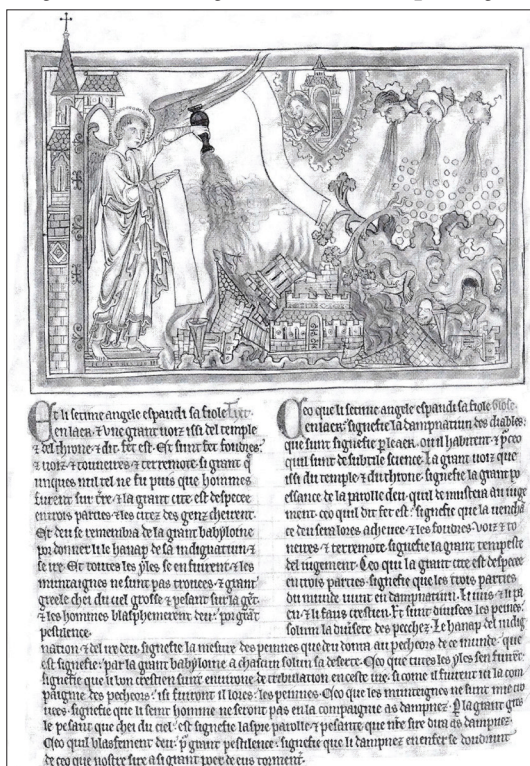 Et li setime angele espandi sa fiole Texte
en lacir. ⁊ vne grant uoiz issi del temple
⁊ del throne. ⁊ dit. fet est. Et sunt fet foudres.
⁊ uoiz ⁊ touneires. ⁊ terremote si grant q̃
unques nul tel ne fu puis que hommes
furent sur tre. ⁊ la grant cite est despecee
en trois parties ⁊ les citez des genz cheirent.
Et deu se remembra de la grant babylonie
por donner li le hanap de sa indignatiun ⁊
se ire. Et toutes les yles se en fuirent. ⁊ les
muntaignes ne sunt pas trouees. ⁊ grant
greele chei du ciel grosse ⁊ pesant sur la gēt.
⁊ les hommes blasphemerent deu. por grāt
pestilence.
Ceo que li setime angele espandi sa fiole Glose
en lacir. signefie la dampnatiun des diables.
que sunt signefie p le air. ou il habitent. ⁊ p ceo
quil sunt de subtile science. La grant uoiz que
issi du temple ⁊ du throne. signefie la grant po
essance de la parolle deu. quil demustera au iuge
ment. ceo quil dit fet est. signefie que la uenchā
ce deu sera lores acheuee. ⁊ les foudres. uoiz ⁊ to
neires. ⁊ terremote. signefie la grant tempeste
del iugement. Ceo qui la grant cite est despecee
en trois parties. signefie que les trois parties
du munde uunt en dampnatiun. li iuis. ⁊ li pai
en. ⁊ li faus crestien. Et sunt diuisees les peines.
solum la diuisete des pecchez. Le hanap del indig
nation ⁊ del ire deu. signefie la mesure des peines que deu donra au pecheors de ce munde. que
est signefie. par la grant babylonie a chascun solun sa deserte. Ceo que tutes les yles sen fuirēt.
signefie que li bon crestien sunt enuirone de tribulation en ceste uie. si come il fuirent ici la com
paignie des pecheors. isi fuiront il lores. les peines. Ceo que les munteignes ne sunt mie tro
uees. signefie que li seint homme ne seront pas en la compaignie as dampnez. P la grant gres
le pesant que chei du ciel. est signefie laspre parolle ⁊ pesante que nre sire dira as dampnez.
Ceo quil blasfement deu. p grant pestilence. signefie que li dampnez en enfer se doudrunt
de ceo que nostre sire a si grant poer de eus torment.